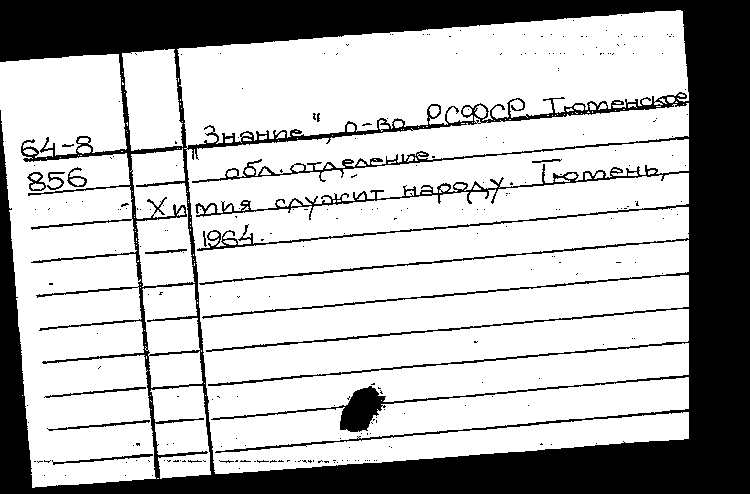 64-8
856
"Знание", о-во РСФСР. Тюменское
обл. отделение.
Химия служит народу. Тюмень,
1964.